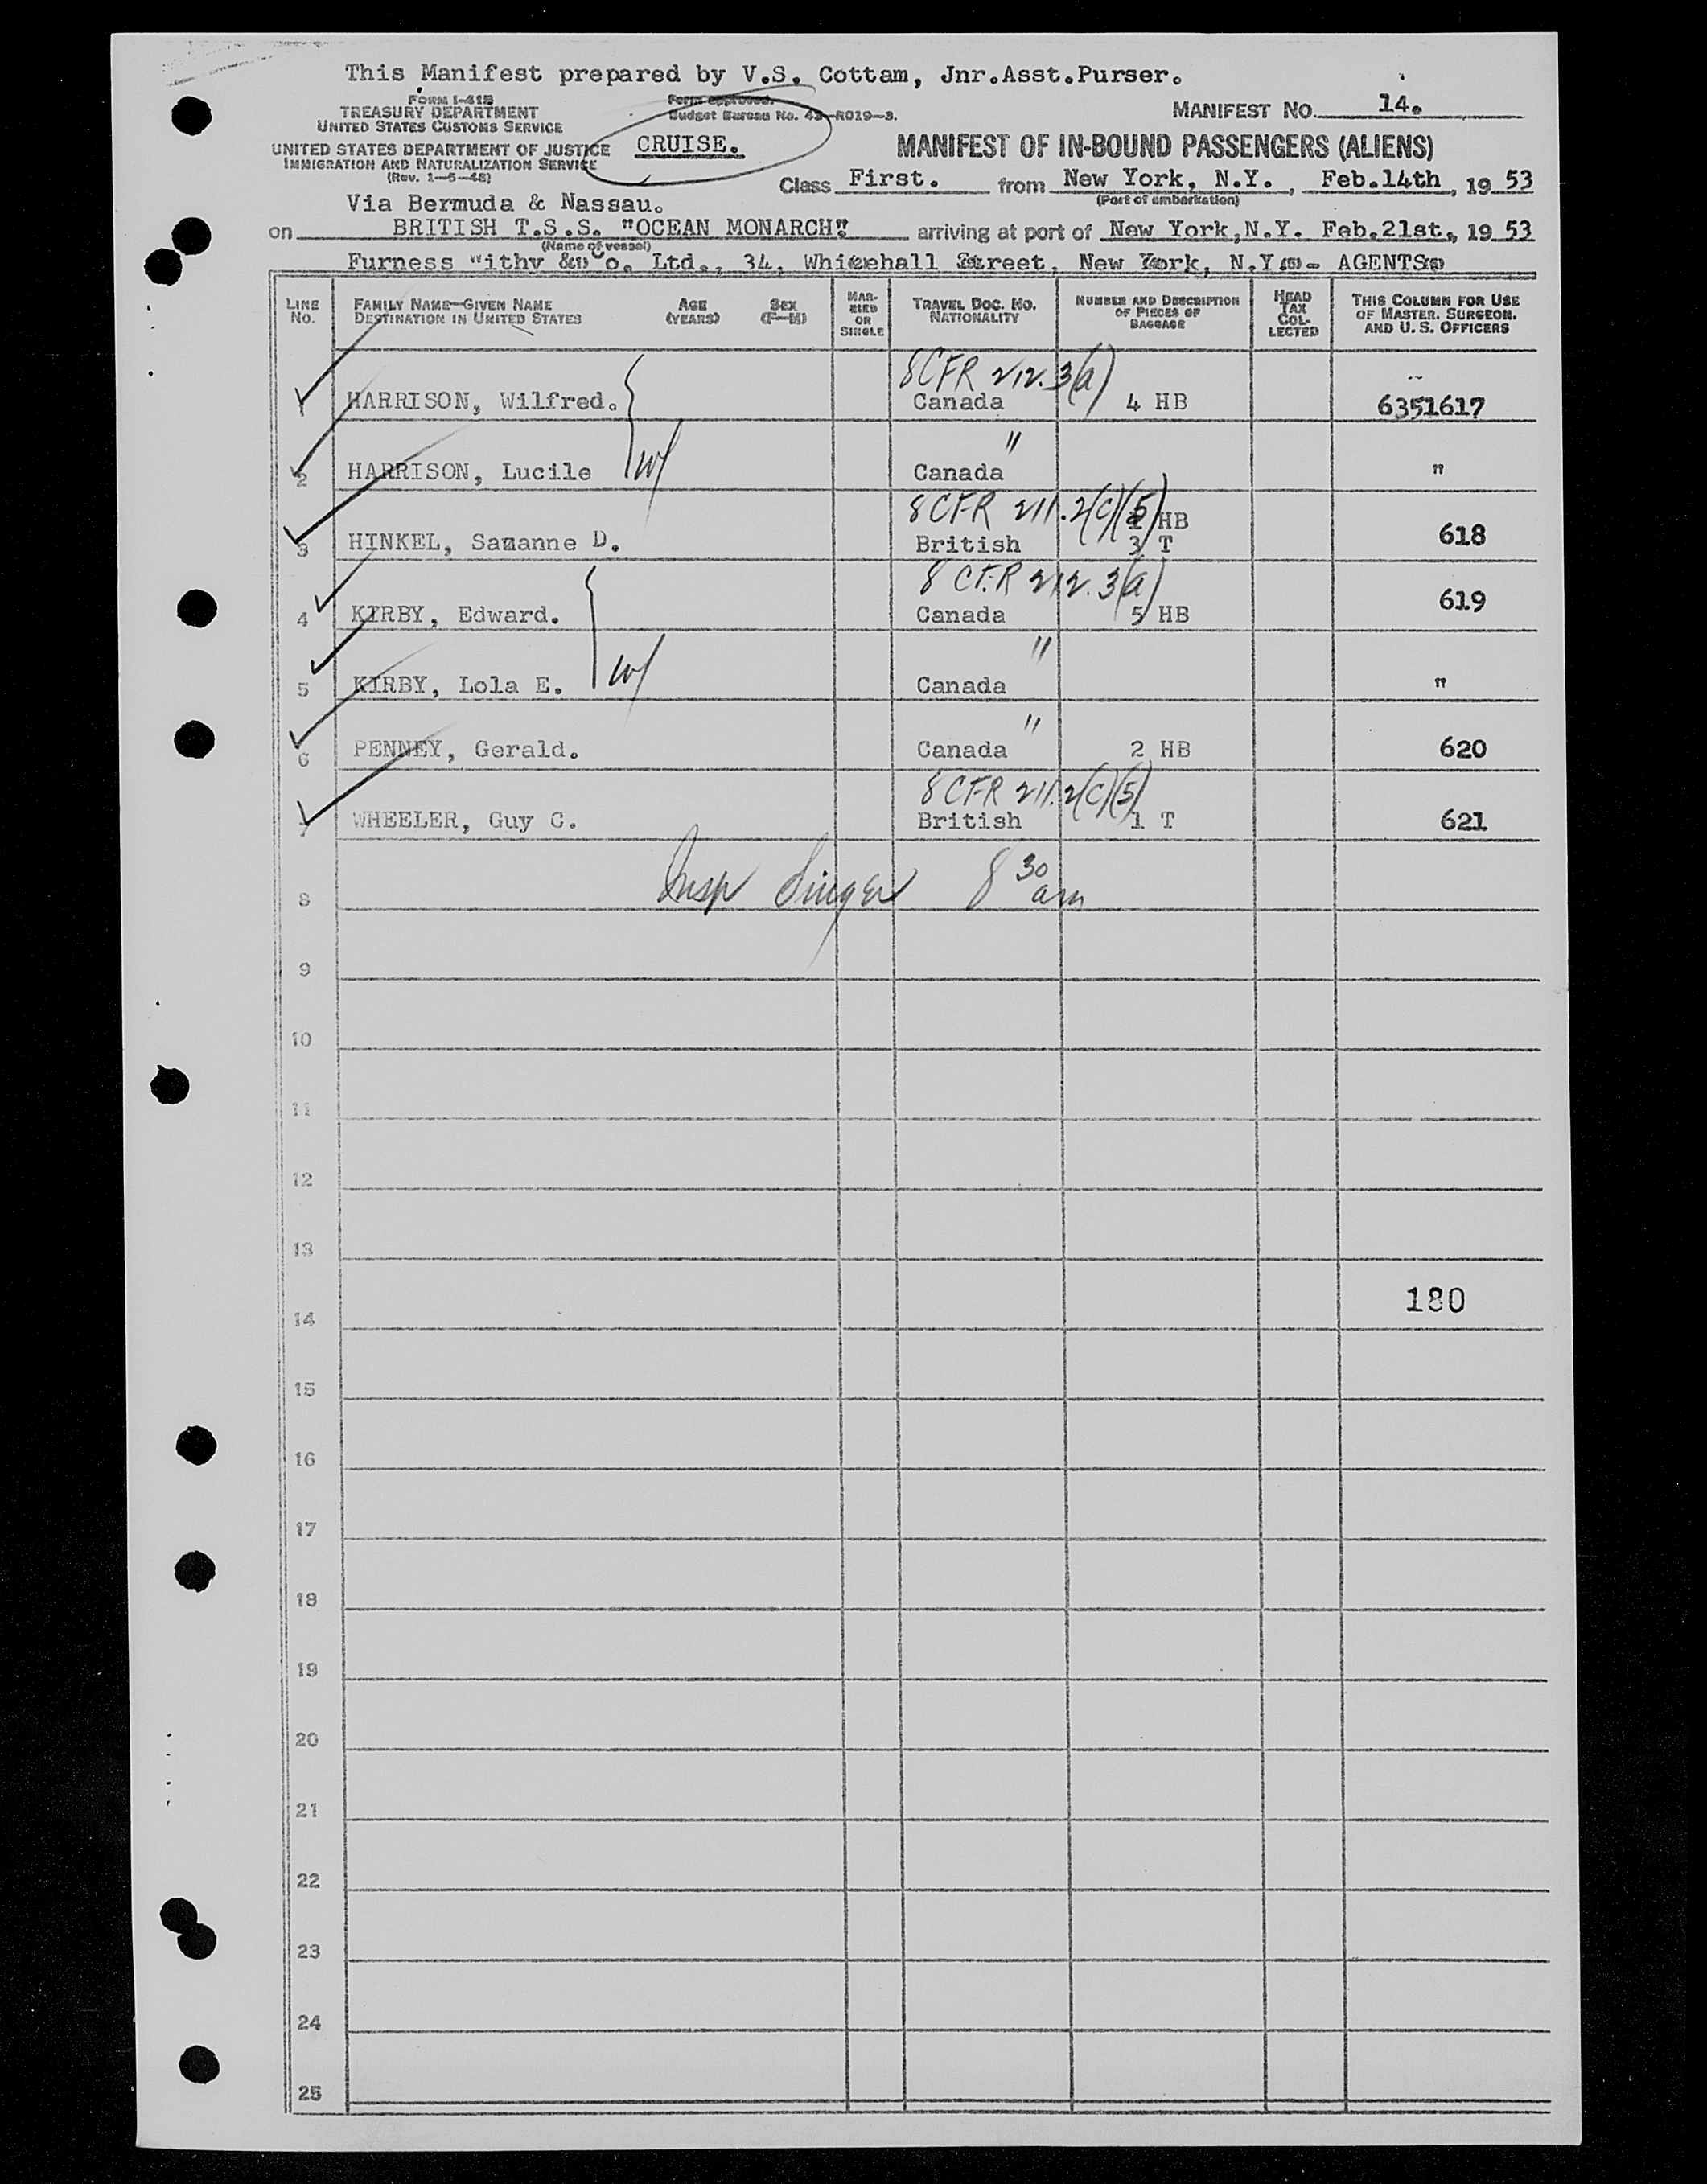 This Manifest prepared by V.S. Cottam, Jnr.Asst.Purser.
FORM I-418
TREASURY DEPARTMENT
UNITED STATES CUSTOMS SERVICE
UNITED STATES DEPARTMENT OF JUSTICE
IMMIGRATION AND NATURALIZATION SERVICE
(Rev. 1-5-48)
Form approved.
Budget Bureau No. 43-R019-3.
CRUISE.
MANIFEST NO. 14.
MANIFEST OF IN-BOUND PASSENGERS (ALIENS)
Class First. from New York, N.Y., Feb.14th, 19 53
(Port of embarkation)
Via Bermuda & Nassau.
on BRITISH T.S.S. "OCEAN MONARCH". arriving at port of New York, N.Y. Feb.21st., 19 53
(Name of vessel)
Furness Withy & Co. Ltd., 34, Whitehall Street, New York, N.Y. - AGENTS
LINE NO. FAMILY NAME-GIVEN NAME DESTINATION IN UNITED STATES AGE (YEARS) SEX (F-M) MARRIED OR SINGLE TRAVEL DOC. NO. NATIONALITY NUMBER AND DESCRIPTION OF PIECES OF BAGGAGE HEAD TAX COLLECTED THIS COLUMN FOR USE OF MASTER, SURGEON, AND U. S. OFFICERS
8 CFR 212.3(a)
1 HARRISON, Wilfred. Canada 4 HB 6351617
"
2 HARRISON, Lucile W/ Canada "
8 CFR 211.2(c)(5) HB
3 HINKEL, Suzanne D. British 3 T 618
8 CFR 212.3(a)
4 KIRBY, Edward. Canada 5 HB 619
"
5 KIRBY, Lola E. W/ Canada "
"
6 PENNEY, Gerald. Canada 2 HB 620
8 CFR 211.2(c)(5)
7 WHEELER, Guy C. British 1 T 621
8 Insp Singer 8 30 am
9
10
11
12
13
14 180
15
16
17
18
19
20
21
22
23
24
25